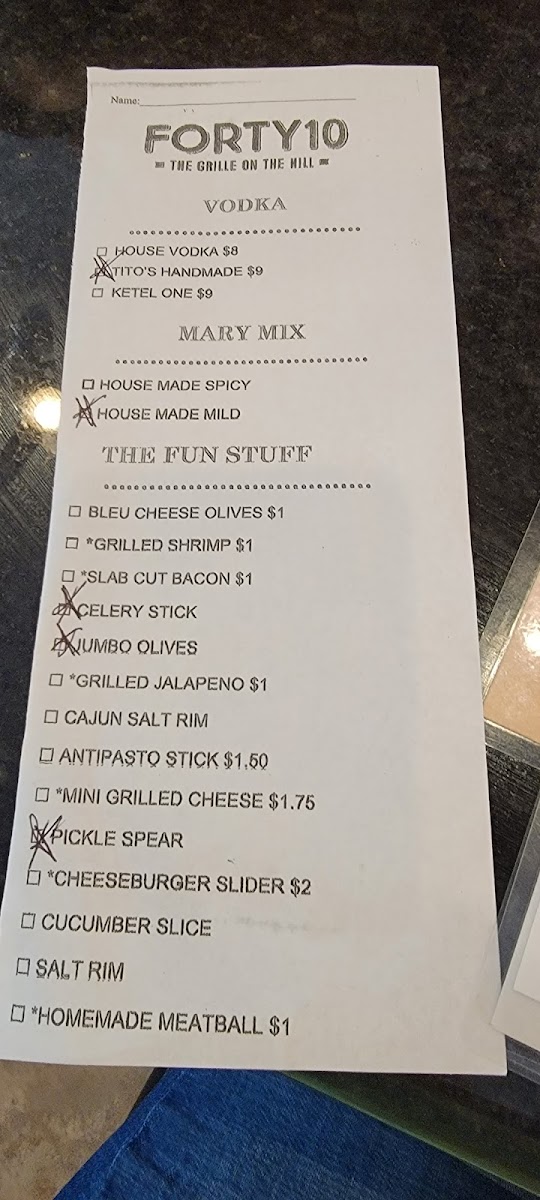 Name:
FORTY10
THE GRILLE ON THE HILL
VODKA
HOUSE VODKA $8
TITO'S HANDMADE $9
KETEL ONE $9
MARY MIX
HOUSE MADE SPICY
HOUSE MADE MILD
THE FUN STUFF
BLEU CHEESE OLIVES $1
*GRILLED SHRIMP $1
*SLAB CUT BACON $1
CELERY STICK
JUMBO OLIVES
*GRILLED JALAPENO $1
CAJUN SALT RIM
ANTIPASTO STICK $1.50
*MINI GRILLED CHEESE $1.75
PICKLE SPEAR
*CHEESEBURGER SLIDER $2
CUCUMBER SLICE
SALT RIM
*HOMEMADE MEATBALL $1